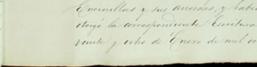 y sus anexos, y habi
otorgó la correspondiente Escritura
veinte y ocho de Enero de mil oc